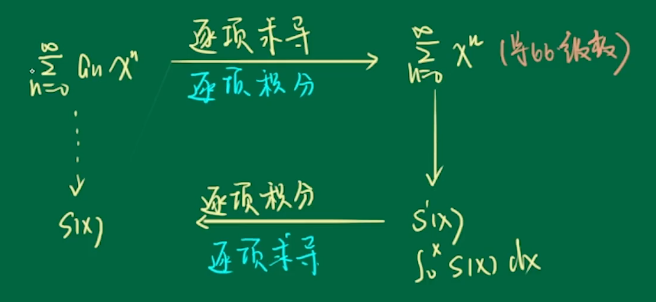 ∞
∑ aₙ xⁿ
n=0
逐项求导
逐项积分
∞
∑ xⁿ (等比级数)
n=0
S(x)
逐项积分
逐项求导
S'(x)
∫₀ˣ S(x) dx